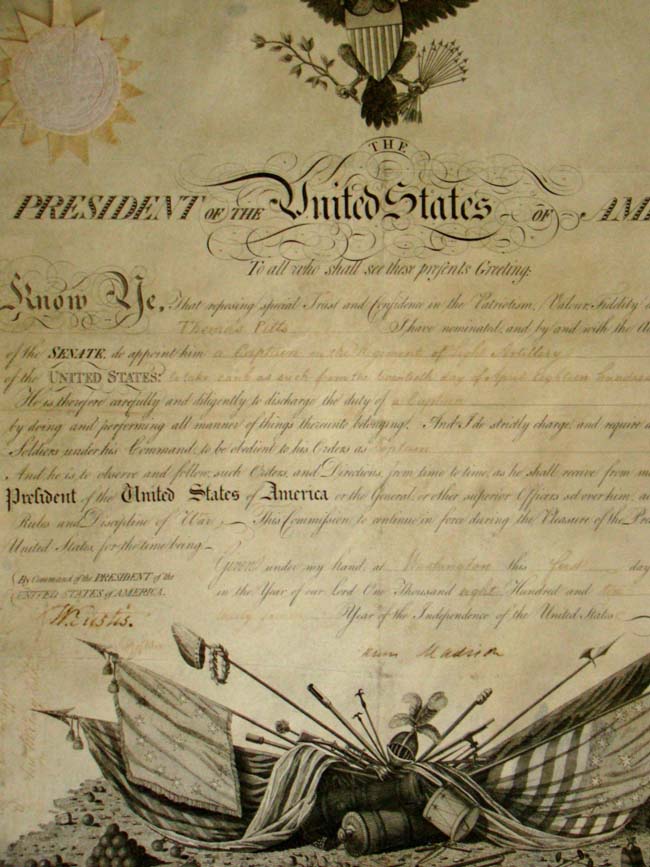 THE
PRESIDENT OF THE United States OF AM
To all who shall see these presents Greeting:
Know Ye, That reposing special Trust and Confidence in the Patriotism, Valour, Fidelity
Thomas Pitts I have nominated, and by and with the A
of the SENATE, do appoint him a Captain in the Regiment of Light Artillery
of the UNITED STATES: to take rank as such from the twentieth day of April Eighteen hundred
He is therefore carefully and diligently to discharge the duty of a Captain
by doing and performing all manner of things thereunto belonging. And I do strictly charge, and require
Soldiers under his Command, to be obedient to his Orders as Captain
And he is to observe and follow such Orders, and Directions, from time to time, as he shall receive from
President of the United States of America or the General or other superior Officers set over him, a
Rules and Discipline of War. This Commission to continue in force during the Pleasure of the Pre
United States, for the time being.
Given under my hand, at Washington this first day
in the Year of our Lord One Thousand eight Hundred and ten
Year of the Independence of the United States
By Command of the PRESIDENT of the
UNITED STATES OF AMERICA.
W. Eustis.
James Madison